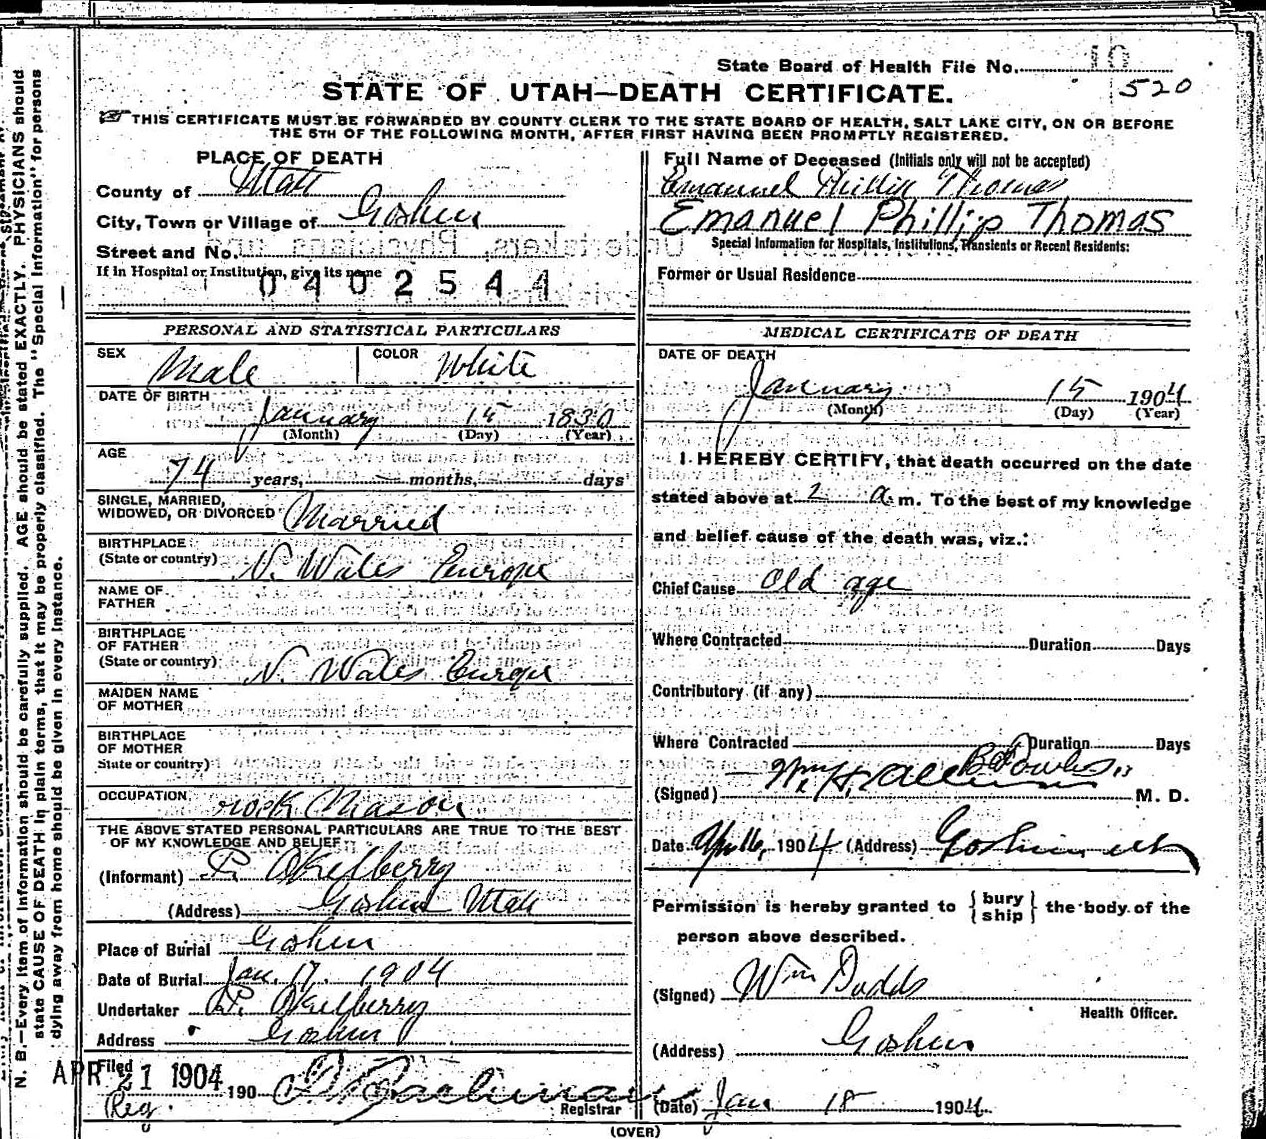 State Board of Health File No. 10
520
STATE OF UTAH—DEATH CERTIFICATE.
THIS CERTIFICATE MUST BE FORWARDED BY COUNTY CLERK TO THE STATE BOARD OF HEALTH, SALT LAKE CITY, ON OR BEFORE
THE 5TH OF THE FOLLOWING MONTH, AFTER FIRST HAVING BEEN PROMPTLY REGISTERED.
PLACE OF DEATH
County of Utah
City, Town or Village of Goshen
Street and No.
If in Hospital or Institution, give its name
0402544
Full Name of Deceased (Initials only will not be accepted)
Emanuel Phillip Thomas
Emanuel Phillip Thomas
Special Information for Hospitals, Institutions, Transients or Recent Residents:
Former or Usual Residence
PERSONAL AND STATISTICAL PARTICULARS
SEX Male COLOR White
DATE OF BIRTH
January 15 1830
(Month) (Day) (Year)
AGE
74 years, months, days
SINGLE, MARRIED,
WIDOWED, OR DIVORCED Married
BIRTHPLACE
(State or country) N. Wales Europe
NAME OF
FATHER
BIRTHPLACE
OF FATHER
(State or country) N. Wales Europe
MAIDEN NAME
OF MOTHER
BIRTHPLACE
OF MOTHER
State or country)
OCCUPATION rock Mason
THE ABOVE STATED PERSONAL PARTICULARS ARE TRUE TO THE BEST
OF MY KNOWLEDGE AND BELIEF
(Informant) P. Okelberry
(Address) Goshen Utah
Place of Burial Goshen
Date of Burial Jan. 17. 1904
Undertaker P. Okelberry
Address Goshen
Filed APR 21 1904 190
Reg.
Registrar
MEDICAL CERTIFICATE OF DEATH
DATE OF DEATH
January 15 1904
(Month) (Day) (Year)
I HEREBY CERTIFY, that death occurred on the date
stated above at 2 a. m. To the best of my knowledge
and belief cause of the death was, viz.:
Chief Cause Old age
Where Contracted Duration Days
Contributory (if any)
Where Contracted Duration Days
(Signed) M. D.
Date 1904 (Address) Goshen
Permission is hereby granted to { bury
ship } the body of the
person above described.
(Signed) Wm Dodds
Health Officer.
(Address) Goshen
(Date) Jan 18 1904
(OVER)
N. B.—Every item of information should be carefully supplied. AGE should be stated EXACTLY. PHYSICIANS should
state CAUSE OF DEATH in plain terms, that it may be properly classified. The "Special Information" for persons
dying away from home should be given in every instance.